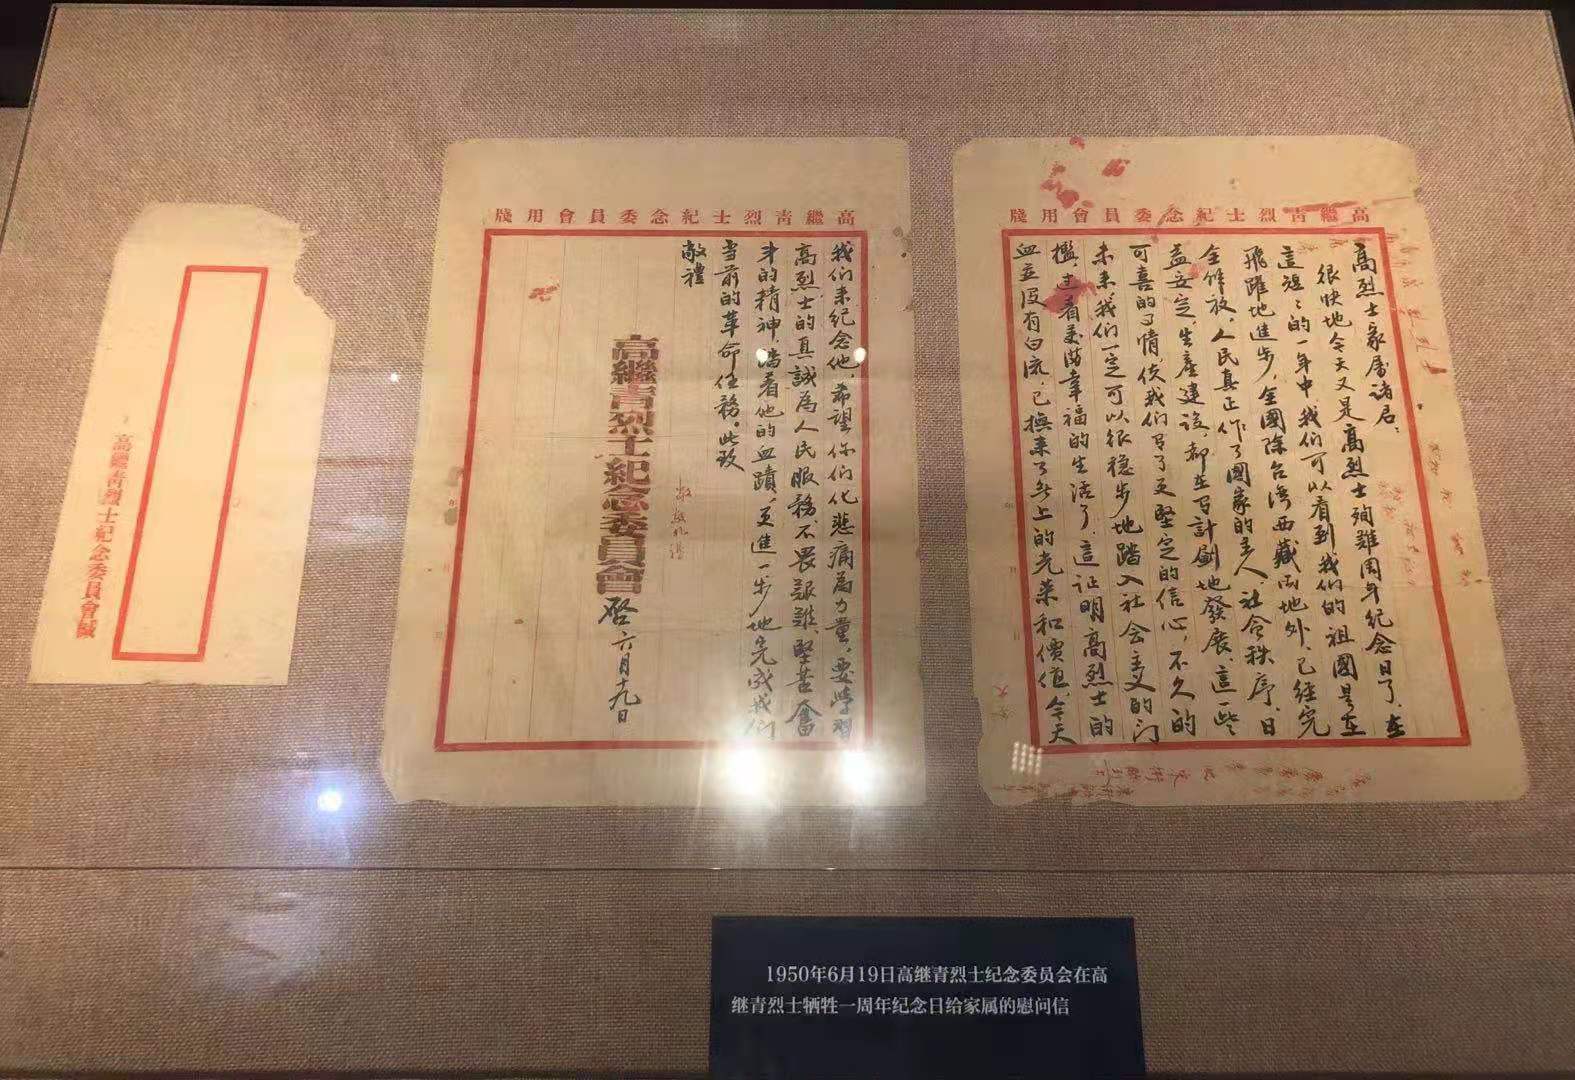 高繼青烈士紀念委員會用牋
高烈士家屬诸君：
很快地今天又是高烈士殉難周年纪念日了，在
這短〻的一年中，我们可以看到我们的祖國是在
飛躍地進步，全國除台湾西藏两地外，已经完
全解放，人民真正作了國家的主人，社会秩序，日
益安定，生産建设，都在有计劃地發展，這一些
可喜的事情，使我们有了更堅定的信心，不久的
未来我们一定可以很稳步地踏入社会主义的门
檻，过着美满幸福的生活了，這证明高烈士的
血並没有白流，已换来了无上的光荣和價值，今天
高繼青烈士紀念委員會用牋
我们来纪念他，希望你们化悲痛為力量，要學習
高烈士的真誠為人民服務，不畏艰難，堅苦奮
斗的精神，踏着他的血蹟，更進一步地完成我们
当前的革命任務。此致
敬禮
高繼青烈士紀念委員會 啓 六月十九日
高繼青烈士紀念委員會緘
1950年6月19日高继青烈士纪念委员会在高
继青烈士牺牲一周年纪念日给家属的慰问信